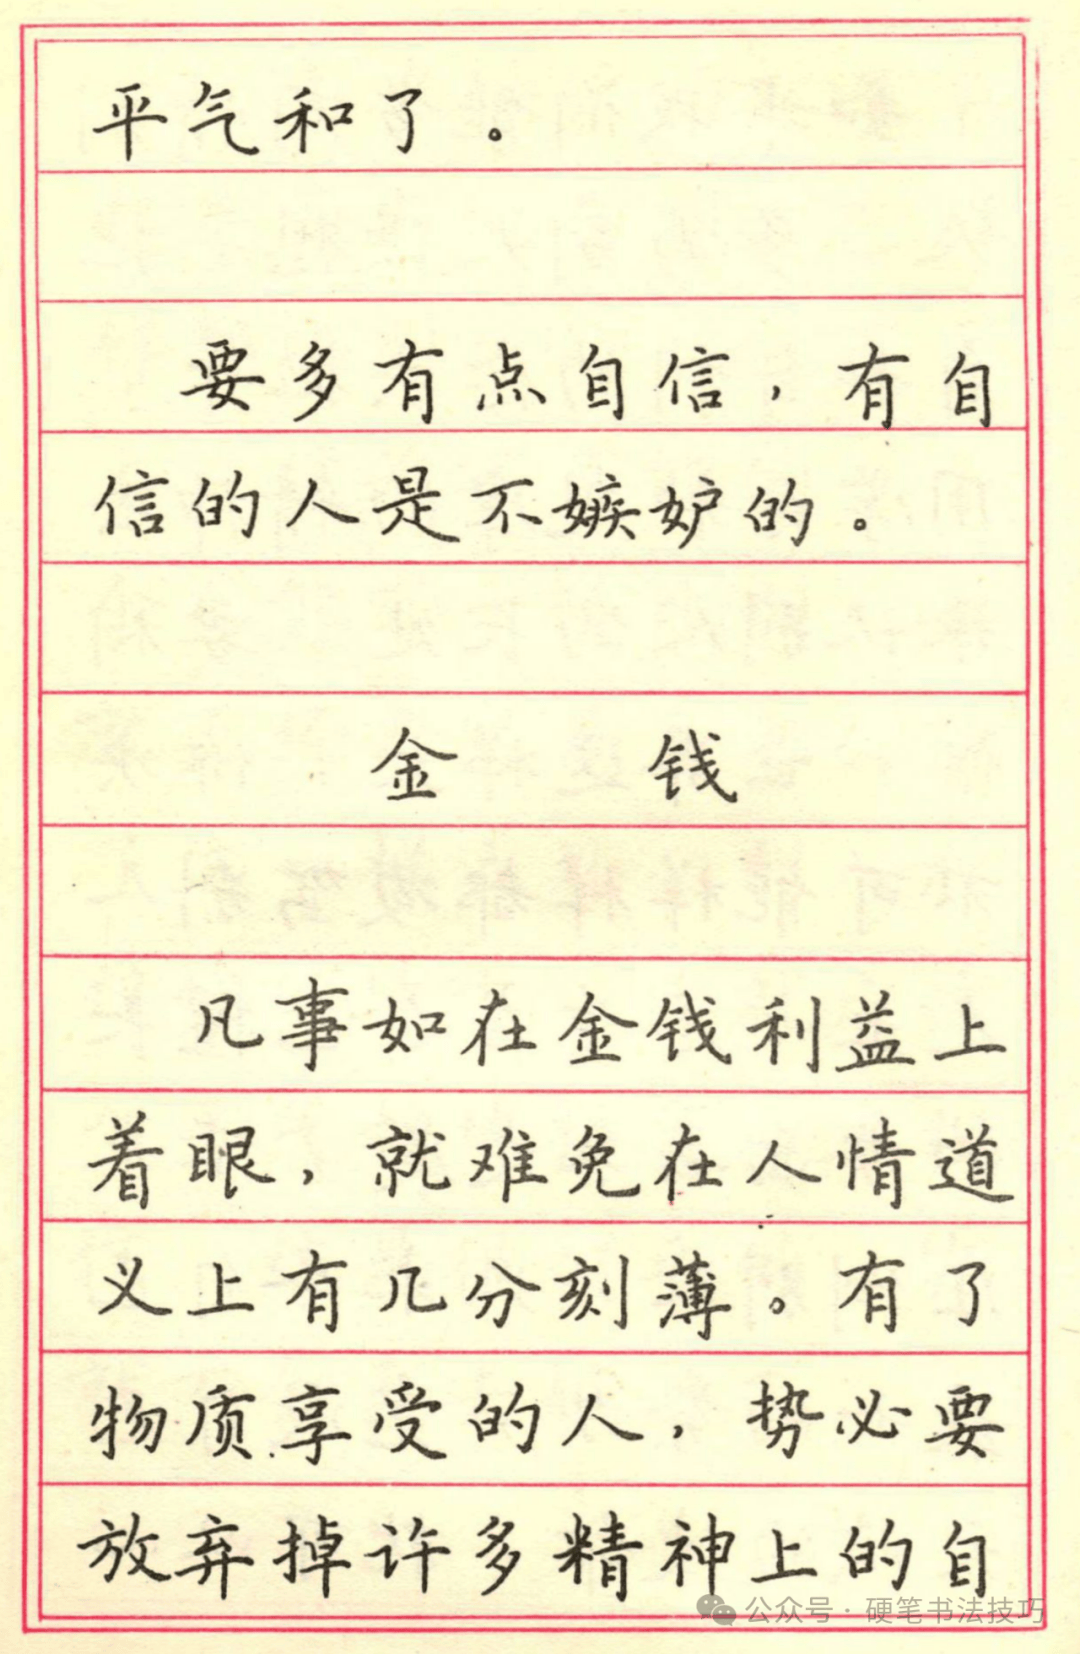 平气和了。
要多有点自信，有自
信的人是不嫉妒的。
金 钱
凡事如在金钱利益上
着眼，就难免在人情道
义上有几分刻薄。有了
物质享受的人，势必要
放弃掉许多精神上的自
公众号·硬笔书法技巧